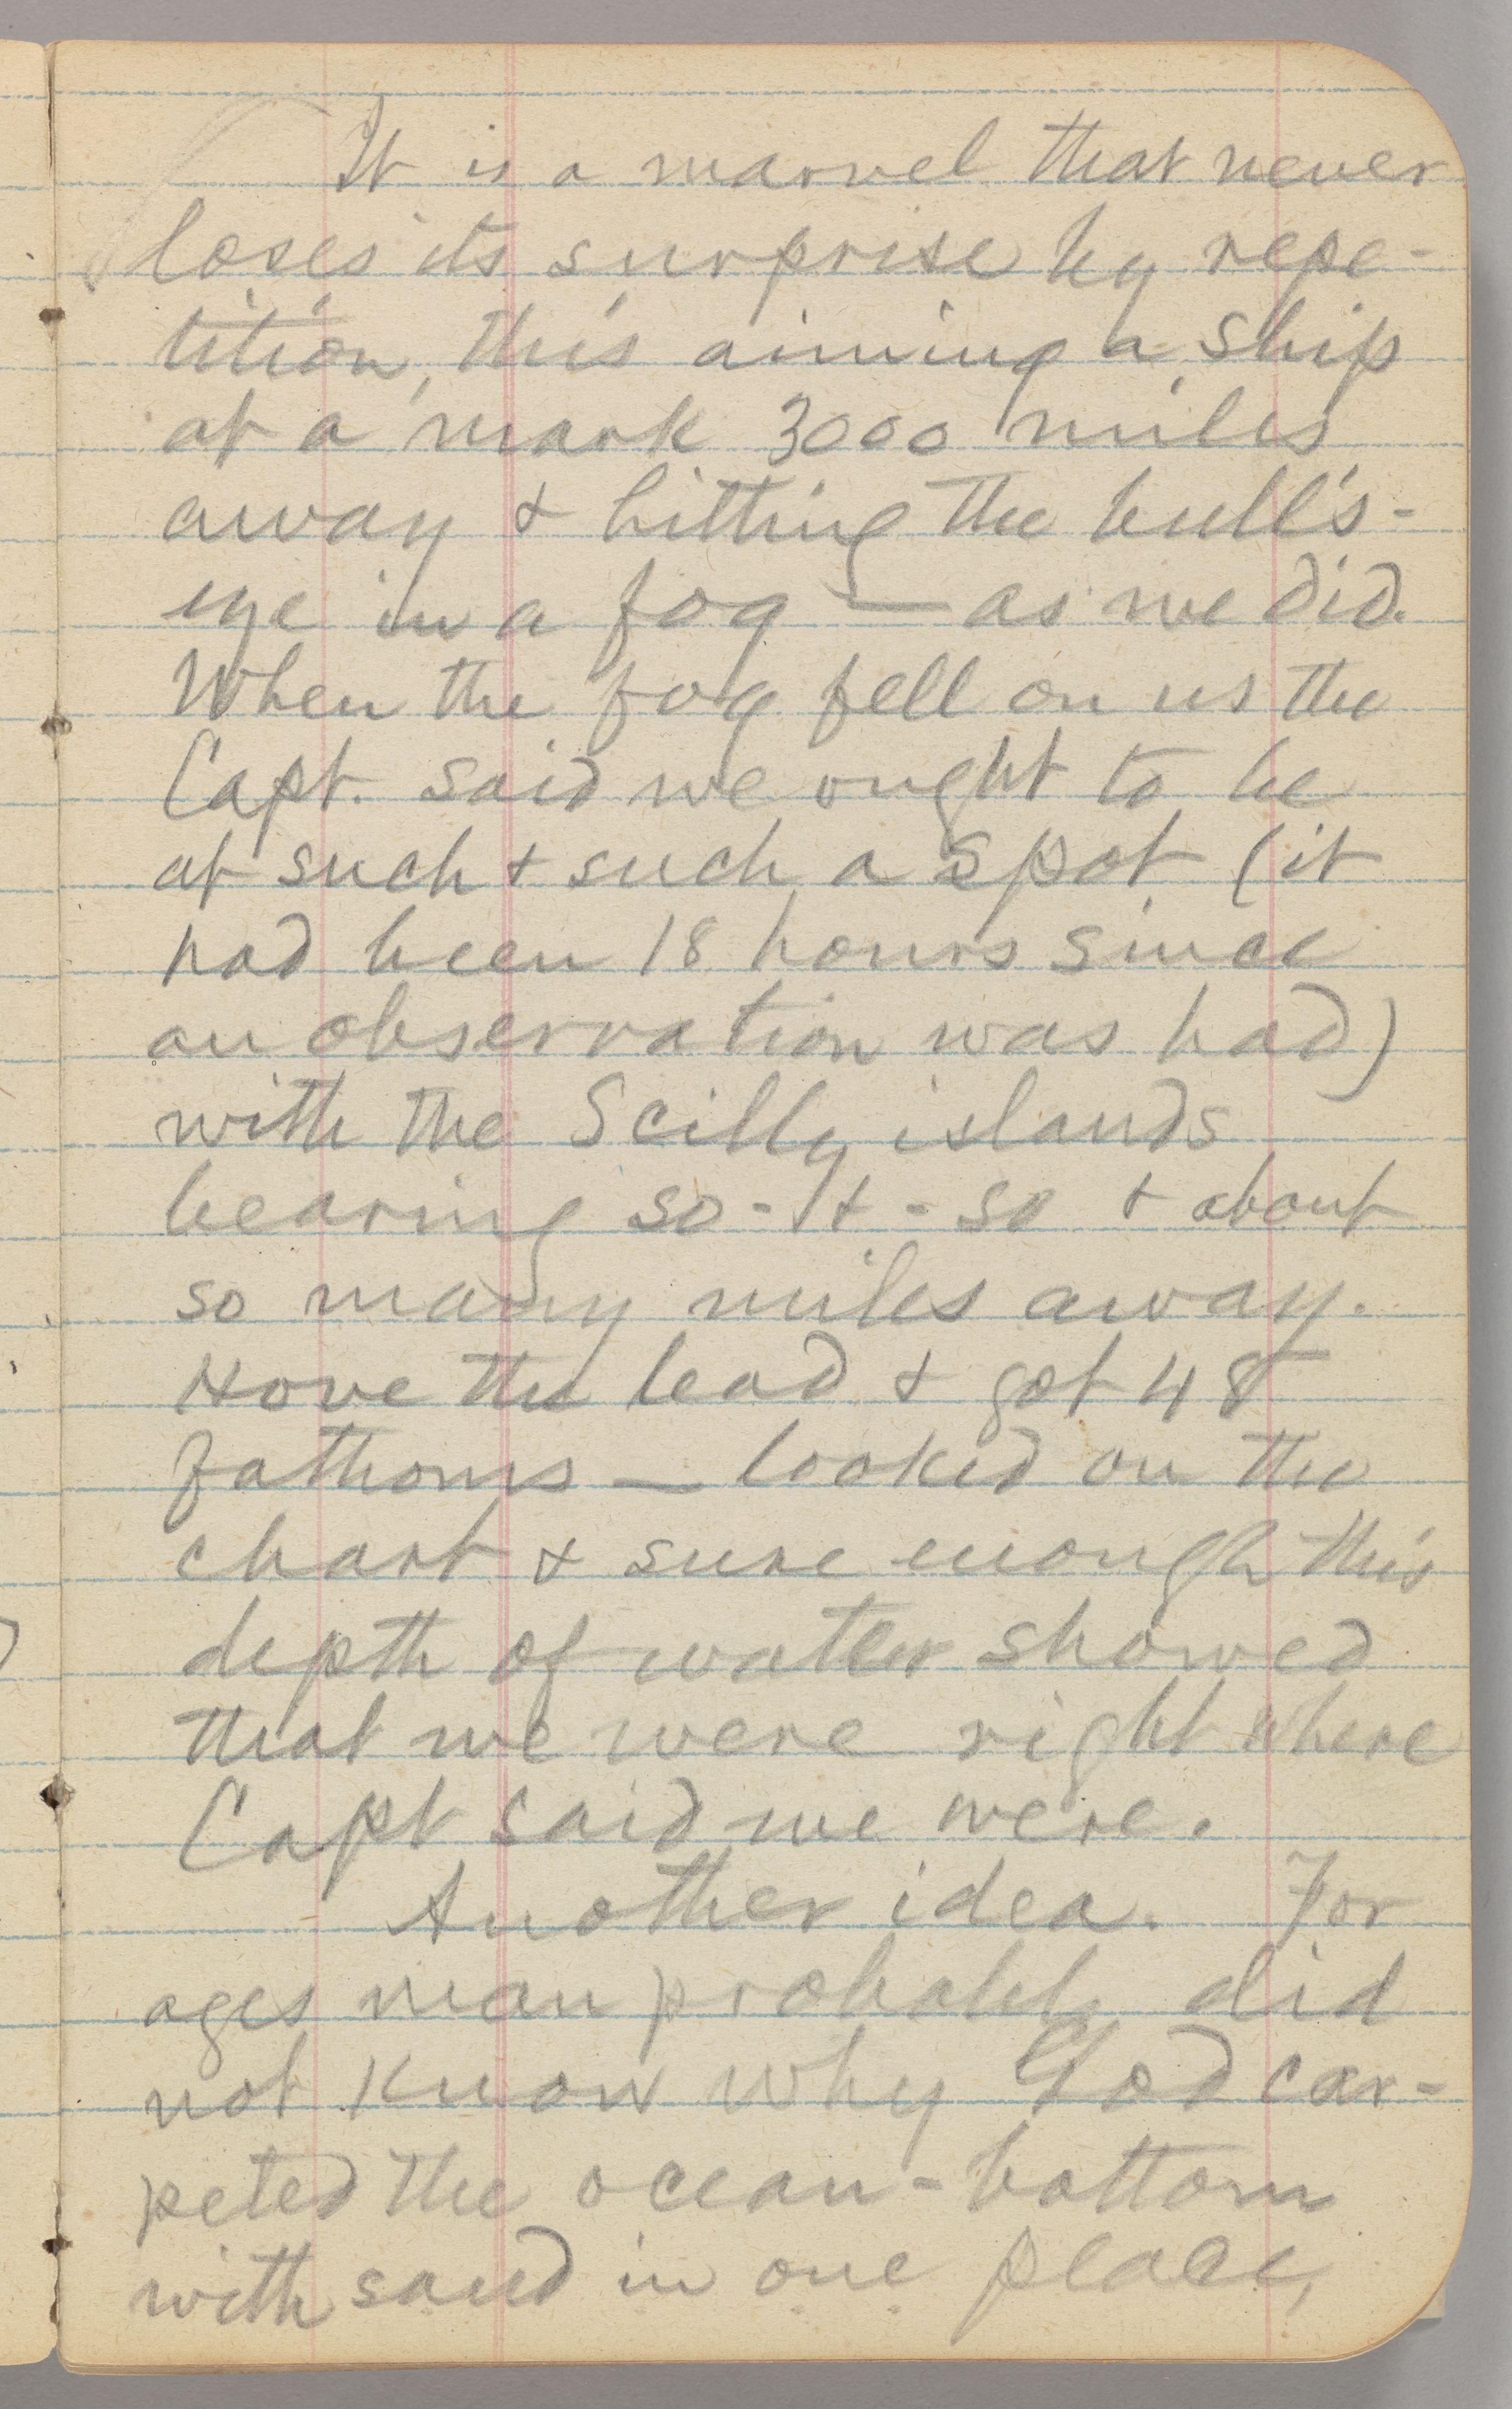 It is a marvel that never
loses its surprise by repe-
tition, this aiming a ship
at a mark 3000 miles
away & hitting the bull's-
eye in a fog — as we did.
When the fog fell on us the
Capt. said we ought to be
at such & such a spot (it
had been 18 hours since
an observation was had)
with the Scilly islands
bearing so-&-so & about
so many miles away.
Hove the lead & got 48
fathoms — looked on the
chart & sure enough this
depth of water showed
that we were right where
Capt said we were.
Another idea. For
ages man probably did
not know why God car-
peted the ocean-bottom
with sand in one place,